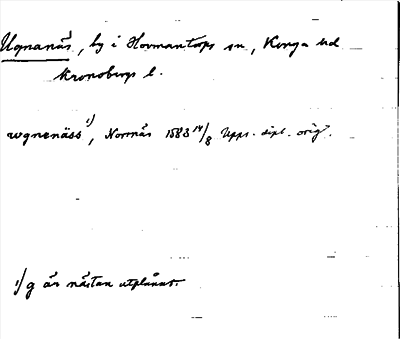 Ugnanäs, by i Hovmantorps sn, Konga hd
Kronobergs l.
wgnenäss 1), Norrnäs 1583 14/8 Upps. dipl. orig.
1) g är nästan utplånat.